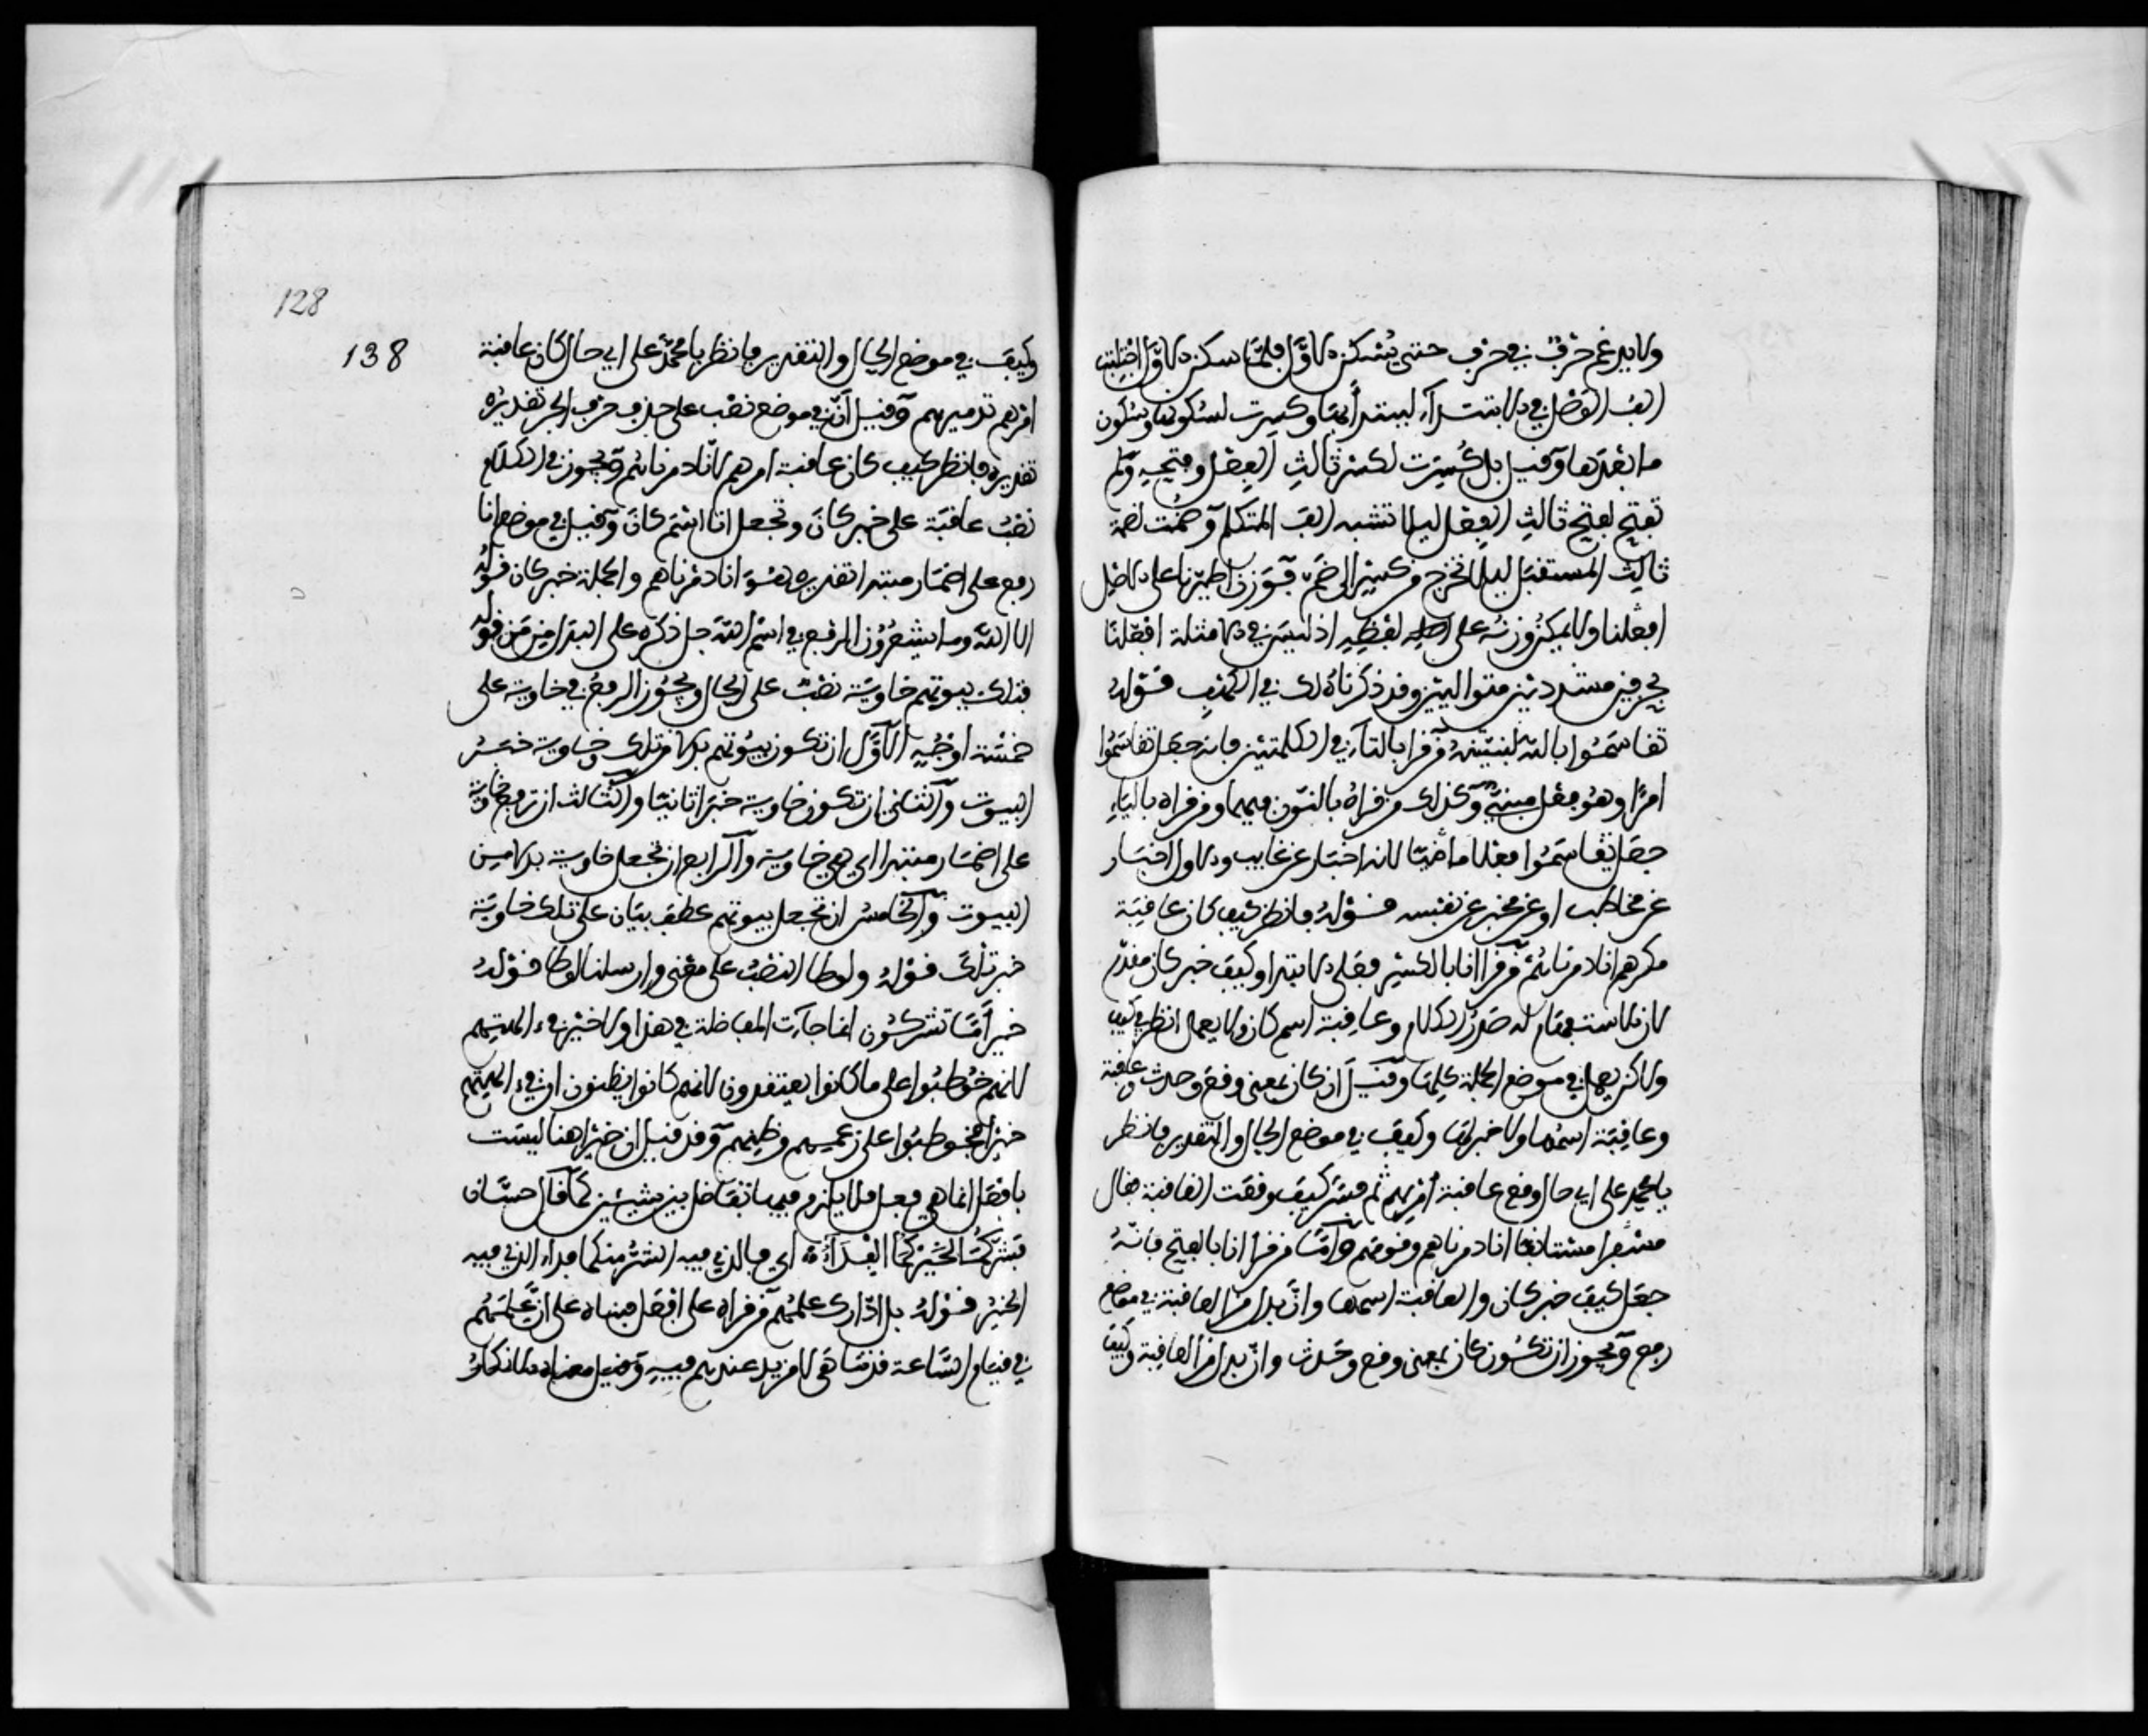 ولا يدغم حرف في حرف حتى يسكن الاول فلما سكن الاول اجتلبت
الف الوصل في الابتداء ليبتدأ بها وكسرت لسكونها وسكون
ما بعدها وقيل بل كسرت لكسر ثالث الفعل وفتحه ولم
تفتح لفتح ثالث الفعل ليلا تشبه الف المتكلم وضمت لضمة
ثالث المستقبل ليلا تخرج من كسر الى ضم فوزن اطيرنا على الاصل
افعلنا ولا يمكن وزنه على لفظه اذ ليس في الامثلة افعلنا
بحرفين مشددين متواليين وقد ذكرنا ذلك في الكهف قوله
تقاسموا بالله لنبيتنه من قرا بالتاء في الكلمتين فانه جعل تقاسموا
امرا وهو فعل مبني وكذلك من قراه بالنون فيهما ومن قراه بالياء
جعل تقاسموا فعلا ماضيا لانه اخبار عن غايب والاول اخبار
عن مخاطب او عن مخبر عن نفسه قوله فانظر كيف كان عاقبة
مكرهم انا دمرناهم من قرا انا بالكسر فعلى الابتدا وكيف خبر كان مقدم
لان الاستفهام له صدر الكلام وعاقبة اسم كان ولا يعمل انظر في كيف
ولاكن يعمل في موضع الجملة كلها وقيل ان كان بمعنى وقع وحدث وعاقبة
وعاقبة اسمها ولا خبر لها وكيف في موضع الحال والتقدير فانظر
يا محمد على اي حال وقع عاقبة امرهم ثم فسر كيف وقعت العاقبة فقال
مفسرا مستانفا انا دمرناهم وقومهم واما من قرا انا بالفتح فانه
جعل كيف خبر كان والعاقبة اسمها وان بدل من العاقبة في موضع
رفع ويجوز ان تكون كان بمعنى وقع وحدث وان بدل من العاقبة وكيف
128
138
وكيف في موضع الحال والتقدير فانظر يا محمد على اي حال كان عاقبة
امرهم تدميرهم وقيل ان في موضع نصب على حذف حرف الجر تقديره
تقديره فانظر كيف كان عاقبة امرهم لانا دمرناهم ويجوز في الكلام
نصب عاقبة على خبر كان وتجعل انا اسم كان وقيل في موضع انا
رفع على اضمار مبتدا تقديره هو انا دمرناهم والجملة خبر كان قوله
الا الله وما يشعرون الرفع في اسم الله جل ذكره على البدل من من قوله
فتلك بيوتهم خاوية نصب على الحال ويجوز الرفع في خاوية على
خمسة اوجه الاول ان تكون بيوتهم بدلا من تلك وخاوية خبر
البيوت والثاني ان تكون خاوية خبرا ثانيا والثالث ان ترفع خاوية
على اضمار مبتدا اي هي خاوية والرابع ان تجعل خاوية بدلا من
البيوت والخامس ان تجعل بيوتهم عطف بيان على تلك خاوية
خبر تلك قوله ولوطا النصب على معنى وارسلنا لوطا قوله
خير اما تشركون انما جاءت المفاضلة في هذا ولا خير في ءالهتهم
لانهم خوطبوا على ما كانوا يعتقدون لانهم كانوا يظنون ان في ءالهتهم
خيرا فخوطبوا على زعمهم وظنهم وقد قيل ان خيرا هنا ليست
بافعل انما هي فعل فلا يلزم فيها تفاضل بين شيئين كما قال حسان
فشركما لخيركما الفداء اي فالذي فيه الشر منكما فداء الذي فيه
الخير قوله بل ادارك علمهم من قراه على افعل فبناه على ان علمهم
في قيام الساعة قد تناهى لا مزيد عندهم فيه وقيل معناه الانكار